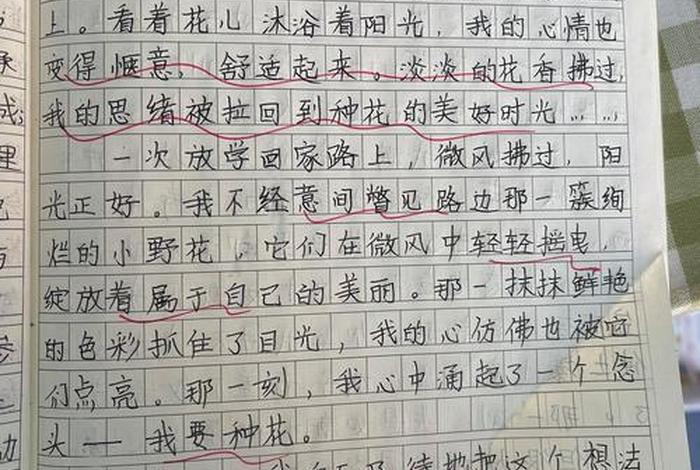 上。看着花儿沐浴着阳光，我的心情也
变得惬意，舒适起来。淡淡的花香拂过，
我的思绪被拉回到种花的美好时光……，
一次放学回家路上，微风拂过，阳
光正好。我不经意间瞥见路边那一簇绚
烂的小野花，它们在微风中轻轻摇曳，
绽放着属于自己的美丽。那一抹抹鲜艳
的色彩抓住了目光，我的心仿佛也被它
们点亮。那一刻，我心中涌起了一个念
头——我要种花。
待地把这个想法